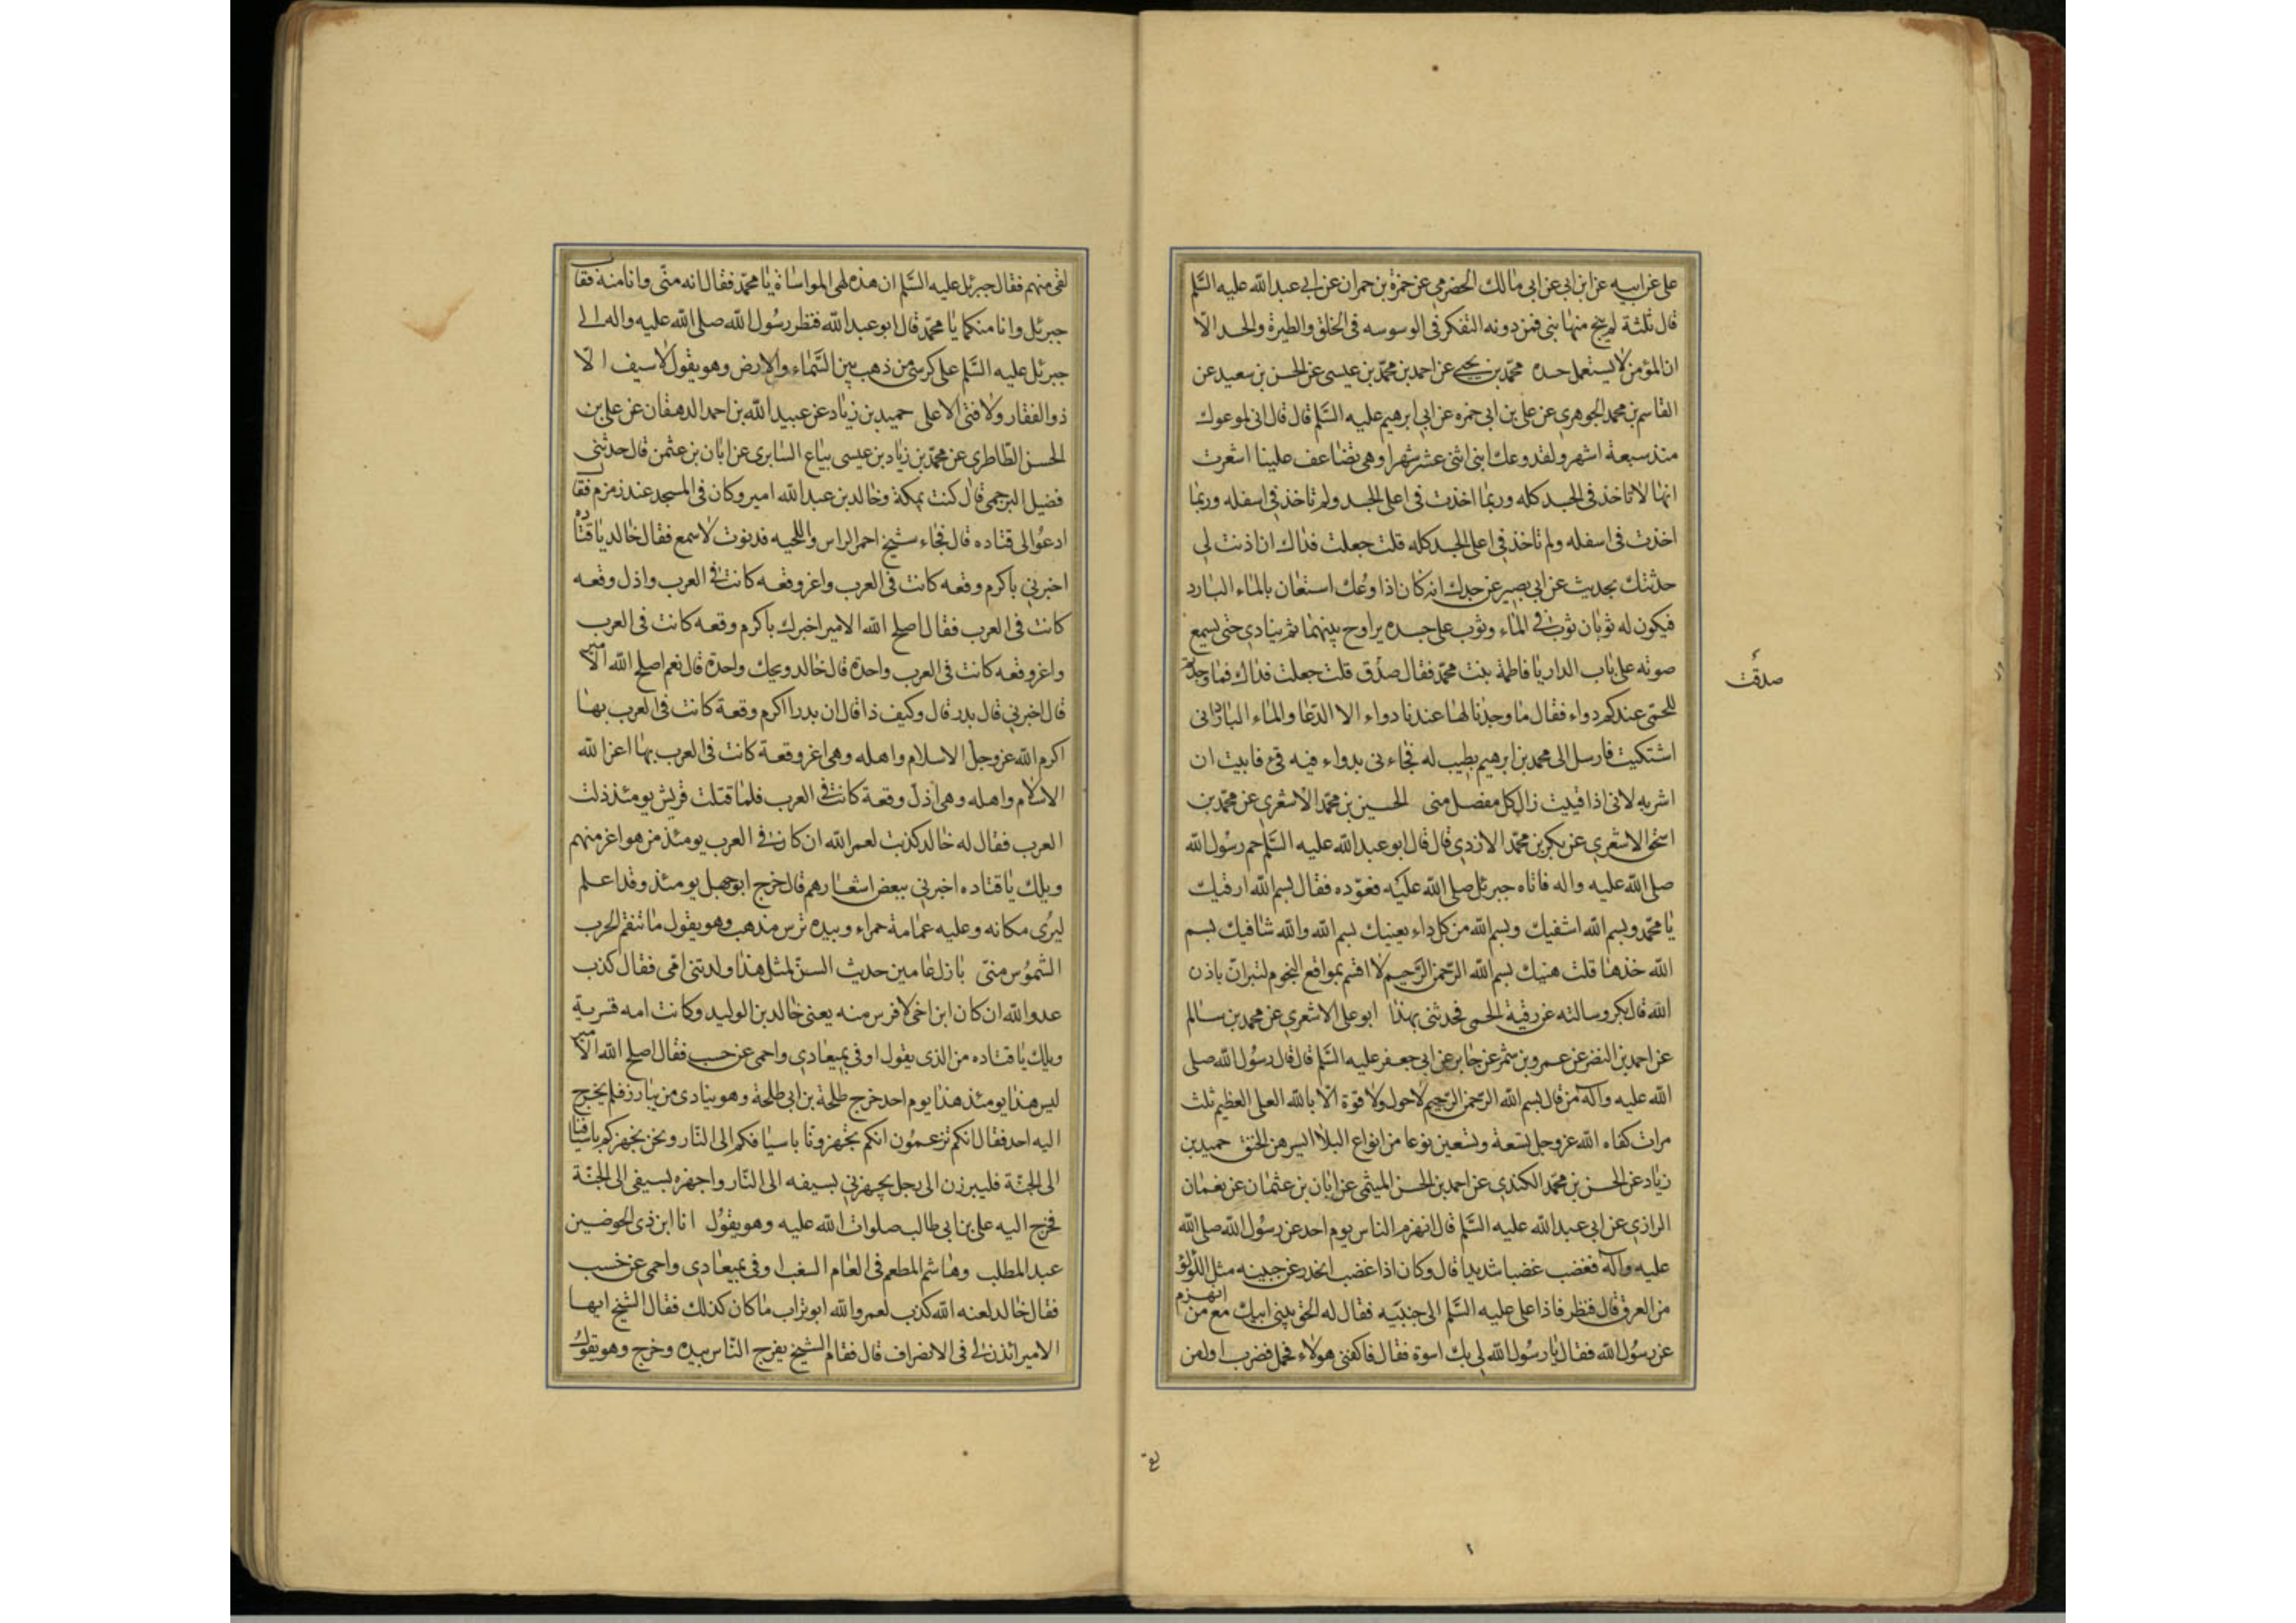 علي عن ابيه عن ابن ابي عن ابي مالك الحضرمي عن حمزة بن حمران عن ابي عبد الله عليه السَّلم
قال ثلثة لم ينج منها نبي فمن دونه التفكر في الوسوسه في الخلق والطيرة والحسد الّا
ان المؤمن لا يستعمل حسده محمّد بن يحيى عن احمد بن محمّد بن عيسى عن الحسن بن سعيد عن
القاسم بن محمد الجوهري عن علي بن ابي حمزه عن ابي ابرهيم عليه السَّلم قال قال اني لموعوك
منذ سبعة اشهر ولقد وعك ابني اثني عشر شهرا وهي تضاعف علينا اشعرت
انها لا تاخذ في الجسد كله وربما اخذت في اعلى الجسد ولم تاخذ في اسفله وربما
اخذت في اسفله ولم تاخذ في اعلى الجسد كله قلت جعلت فداك ان اذنت لي
حدثتك بحديث عن ابي بصير عن جدك انه كان اذا وُعك استعان بالماء البارد
فيكون له ثوبان ثوب في الماء وثوب على جسده يراوح بينهما ثم ينادي حتى يسمع
صوته على باب الدار يا فاطمة بنت محمد فقال صدق قلت جعلت فداك فما وجدتم
صدقت
للحمى عندكم دواء فقال ما وجدنا لها عندنا دواء الا الدّعا والماء البارد اني
اشتكيت فارسل الى محمد بن ابرهيم بطبيب له فجاءني بدواء فيه قئ فابيت ان
اشربه لاني اذا قييت زال كل مفصل مني الحسين بن محمّد الاشعري عن محمّد بن
اسحق الاشعري عن بكر بن محمّد الازدي قال قال ابو عبد الله عليه السَّلم حم رسُول الله
صلى الله عليه واله فاتاه جبرئل صلى الله عليه فعوّذه فقال بسم الله ارقيك
يا محمّد وبسم الله اشفيك وبسم الله من كل داء يعنيك بسم الله والله شافيك بسم
الله خذها فلتهنيك بسم الله الرّحمن الرّحيم لا اقسم بمواقع النجوم لتبرانّ باذن
الله قال بكر وسالته عن رقية الحمى فحدثني بهذا ابو علي الاشعري عن محمد بن سالم
عن احمد بن النضر عن عمرو بن شمر عن جابر عن ابي جعفر عليه السَّلم قال قال رسُول الله صلى
الله عليه وآله من قال بسم الله الرّحمن الرّحيم لا حول ولا قوة الّا بالله العلى العظيم ثلث
مرات كفاه الله عز وجل تسعة وتسعين نوعا من انواع البلاا ايسرهن الخنق حميد بن
زياد عن الحسن بن محمّد الكندي عن احمد بن الحسن الميثمي عن ابان بن عثمان عن نعمان
الرازي عن ابي عبد الله عليه السَّلم قال انهزم الناس يوم احد عن رسُول الله صلى الله
عليه وآله فغضب غضبا شديدا قال وكان اذا غضب انحدر عن جبينه مثل اللؤلؤ
من العرق قال فنظر فاذا علي عليه السَّلم الى جنبيه فقال له الحق ببني ابيك مع من انهزم
عن رسُول الله فقال يا رسُول الله لي بك اسوة فقال فاكفني هولاء فحمل فضرب اول من
لقي منهم فقال جبرئل عليه السَّلم ان هذه لهي المواساة يا محمّد فقال انه منّي وانا منه فقال
جبرئل وانا منكما يا محمّد قال ابو عبد الله فنظر رسُول الله صلى الله عليه واله الى
جبرئل عليه السَّلم على كرسي من ذهب بين السَّماء والارض وهو يقول لا سيف الّا
ذو الفقار ولا فتى الا علي حميد بن زياد عن عبيد الله بن احمد الدهقان عن علي بن
الحسن الطّاطري عن محمّد بن زياد بن عيسى بياع السّابري عن ابان بن عثمن قال حدثني
فضيل البرجمي قال كنت بمكة وخالد بن عبد الله امير وكان في المسجد عند زمزم فقال
ادعُوا لي قتاده قال فجاء شيخ احمر الراس واللحيه فدنوت لاسمع فقال خالد يا قتاده
اخبرني باكرم وقعه كانت في العرب واعز وقعه كانت في العرب واذل وقعه
كانت في العرب فقال اصلح الله الامير اخبرك باكرم وقعه كانت في العرب
واعز وقعه كانت في العرب واحدة قال خالد ويحك واحدة قال نعم اصلح الله الامير
قال اخبرني قال بدر قال وكيف ذا قال ان بدرا اكرم وقعة كانت في العرب بها
اكرم الله عز وجل الاسلام واهله وهي اعز وقعة كانت في العرب بها اعز الله
الاسلام واهله وهي اذل وقعة كانت في العرب فلما قتلت قريش يومئذ ذلت
العرب فقال له خالد كذبت لعمر الله ان كان في العرب يومئذ من هو اعز منهم
ويلك يا قتاده اخبرني ببعض اشعارهم قال خرج ابو جهل يومئذ وقد اعلم
ليُرى مكانه وعليه عمامة حمراء وبيده ترس مذهب وهو يقول ما تنقم الحرب
الشّمُوس منّي بازل عامين حديث السنّ لمثل هذا ولدتني امّي فقال كذب
عدو الله ان كان ابن اخي لافرس منه يعني خالد بن الوليد وكانت امه قسرية
ويلك يا قتاده من الذي يقول اوفي بميعادي واحمي عن حسب فقال اصلح الله الامير
ليس هذا يومئذ هذا يوم احد خرج طلحة بن ابي طلحة وهو ينادي من يبارز فلم يخرج
اليه احد فقال انكم تزعمُون انكم تجهزونّا باسيافكم الى النّار ونحن نجهزكم باسيافنا
الى الجنّة فليبرزن الى رجل يجهزني بسيفه الى النّار واجهزه بسيفي الى الجنّة
فخرج اليه علي بن ابي طالب صلوات الله عليه وهو يقُول انا ابن ذي الحوضين
عبد المطلب وهاشم المطعم في العام السغب اوفي بميعادي واحمي عن حسب
فقال خالد لعنه الله كذب لعمر والله ابو تراب ما كان كذلك فقال الشّيخ ايها
الامير ائذن لي في الانصراف قال فقام الشيخ يفرج النّاس بيده وخرج وهو يقول